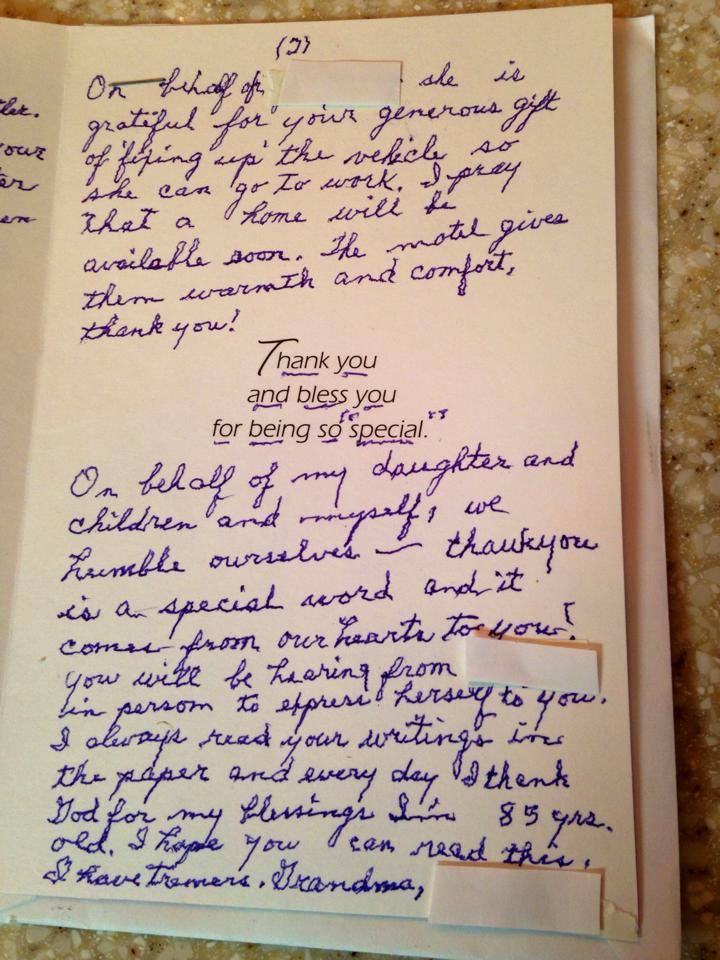 (2)
ther.
your
ter
en
On behalf of she is
grateful for your generous gift
of 'fixing up' the vehicle so
she can go to work. I pray
that a home will be
available soon. The motel gives
them warmth and comfort,
thank you!
Thank you
and bless you
for being so "special."
On behalf of my daughter and
children and myself, we
humble ourselves — thank you
is a special word and it
comes from our hearts to you!
You will be hearing from
in person to express herself to you.
I always read your writings in
the paper and every day I thank
God for my blessings I'm 85 yrs.
old. I hope you can read this.
I have tremers. Grandma,